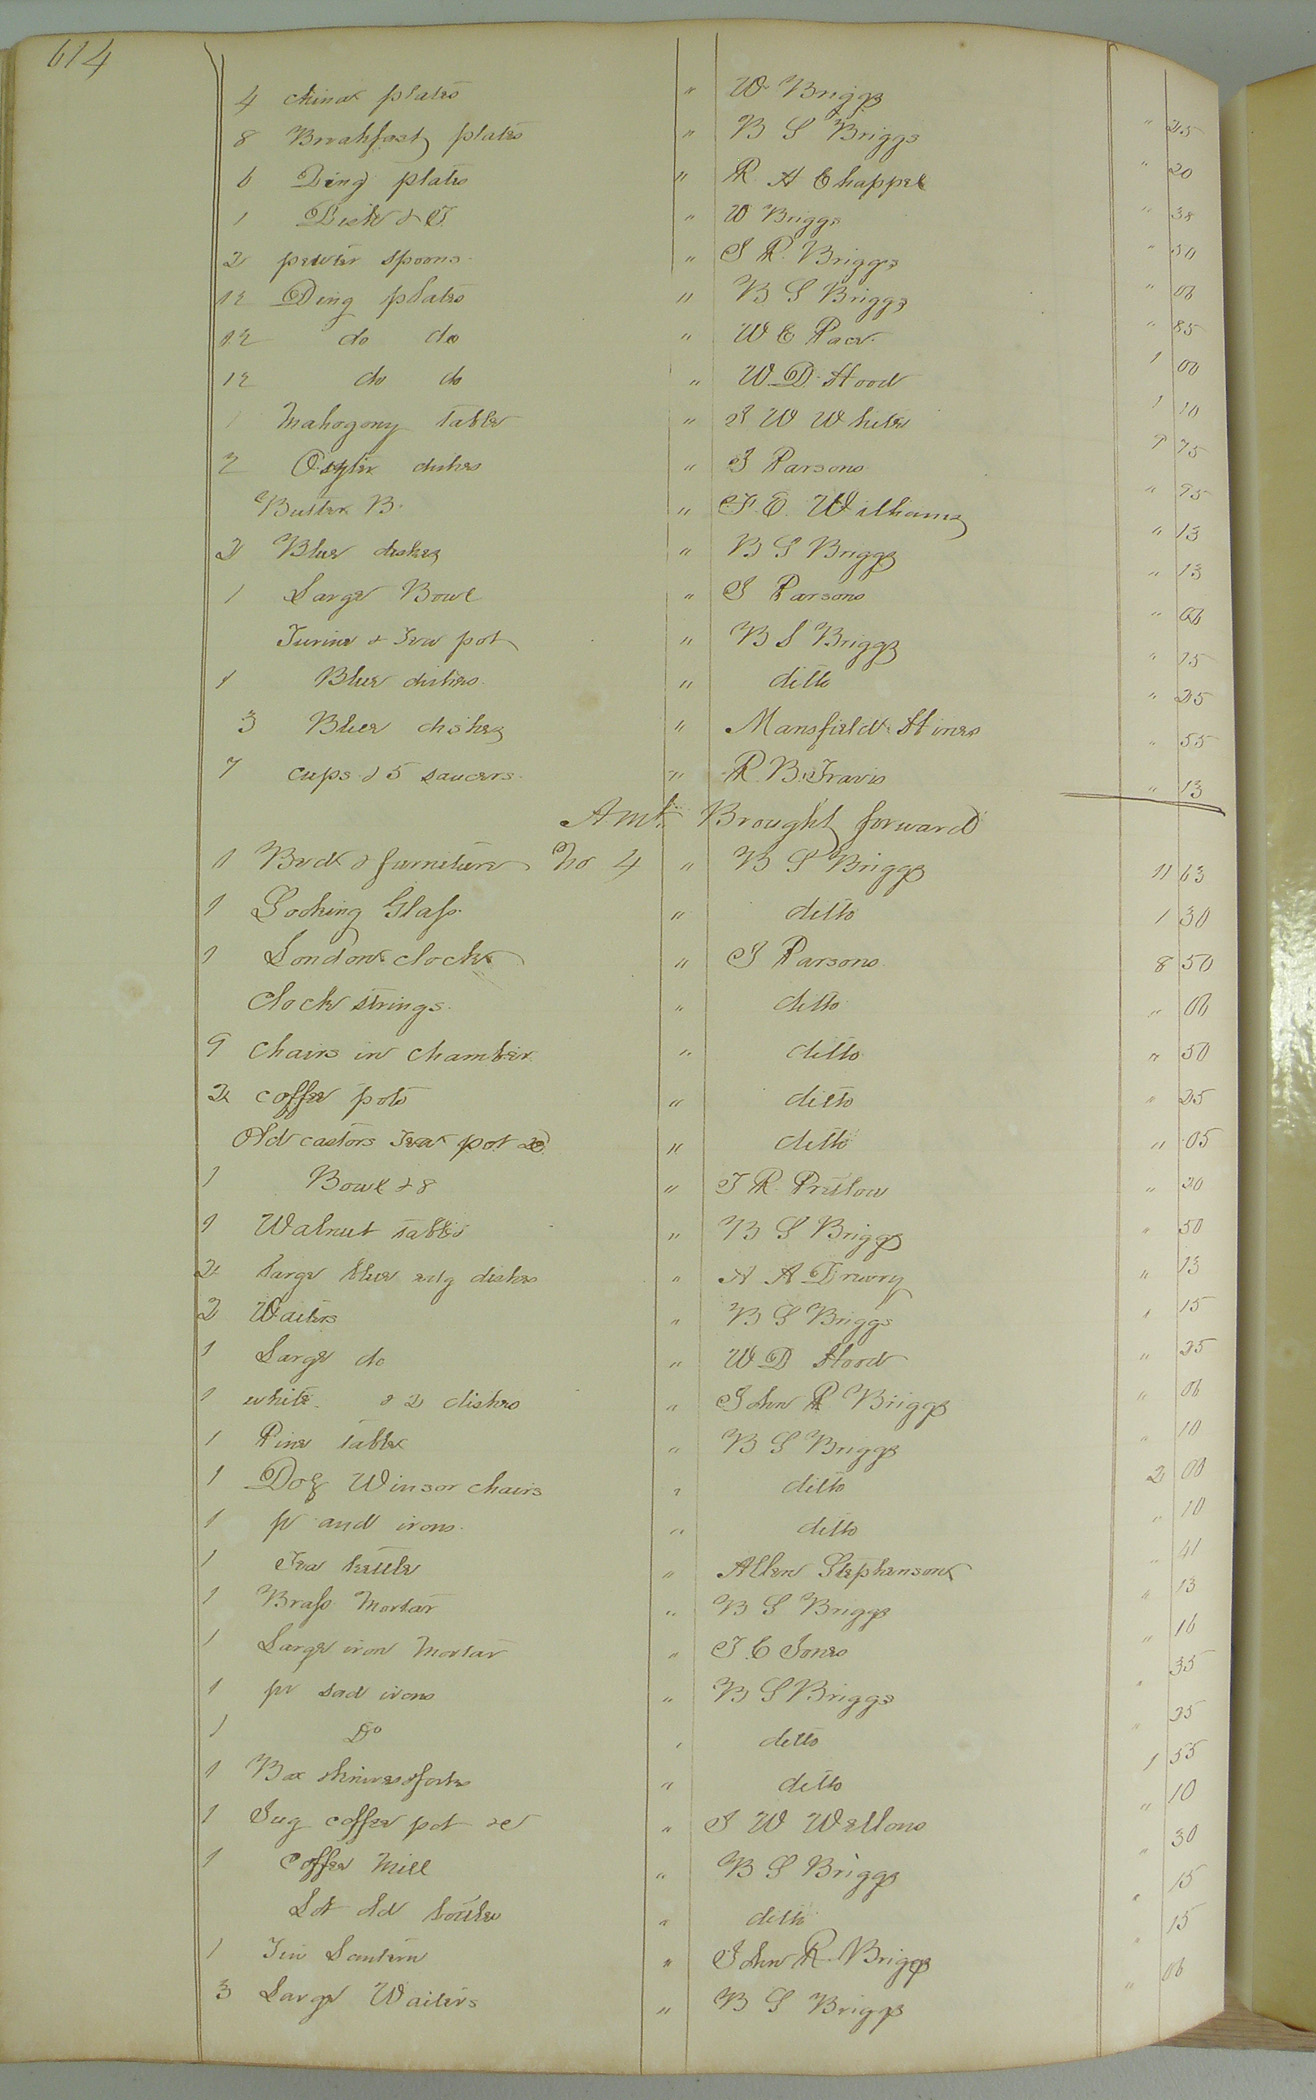 614
4 china plates " W Briggs " 25
8 Breakfast plates " B S Briggs " 20
6 Ding plates " R A Chappel " 38
1 Dish & T. " W Briggs " 50
2 pewter spoons " S R. Briggs " 06
12 Ding plates " B S Briggs " 85
12 do do " W E Race 1 00
12 do do " W. D. Hood 1 10
1 Mahogony table " J W White 2 75
2 Oyster dishes " J Parsons " 25
Butter B. " J. E. Williams " 13
2 Blue dishes " B S Briggs " 13
1 Large Bowl " J Parsons " 06
Turine & Tea pot " B S Briggs " 15
1 Blue dishes " ditto " 25
3 Blue dishes " Mansfield Hines " 55
7 cups & 5 saucers " R. B. Travis " 13
Amt. Brought forward
1 Bed & furniture No 4 " B S Briggs 11 63
1 Looking Glass " ditto 1 30
1 London clock " J Parsons 8 50
Clock strings " ditto " 06
9 chairs in chamber " ditto " 50
2 coffee pots " ditto " 25
Old castors Tea pot &c " ditto " 05
1 Bowl & 8 " J R. Pretlow " 20
1 Walnut table " B S Briggs " 50
2 large blue edg dishes " A A Drewry " 13
2 Waiters " B S Briggs " 15
1 Large do " W D Hood " 25
1 white & 2 dishes " John R Briggs " 06
1 Pine table " B S Briggs " 10
1 Doz Winsor chairs " ditto 2 00
1 pr and irons " ditto " 10
1 Tea kettle " Allen Stephenson " 41
1 Brass Mortar " B S Briggs " 13
1 Large iron Mortar " J. C Jones " 16
1 pr sad irons " B S Briggs " 35
1 Do " ditto " 25
1 Box knives & forks " ditto 1 55
1 Jug coffee pot &c " J W Wellons " 10
1 coffee Mill " B S Briggs " 30
Lot old bottles " ditto " 15
1 Tin Lantern " John R. Briggs " 15
3 Large Waiters " B S Briggs " 06